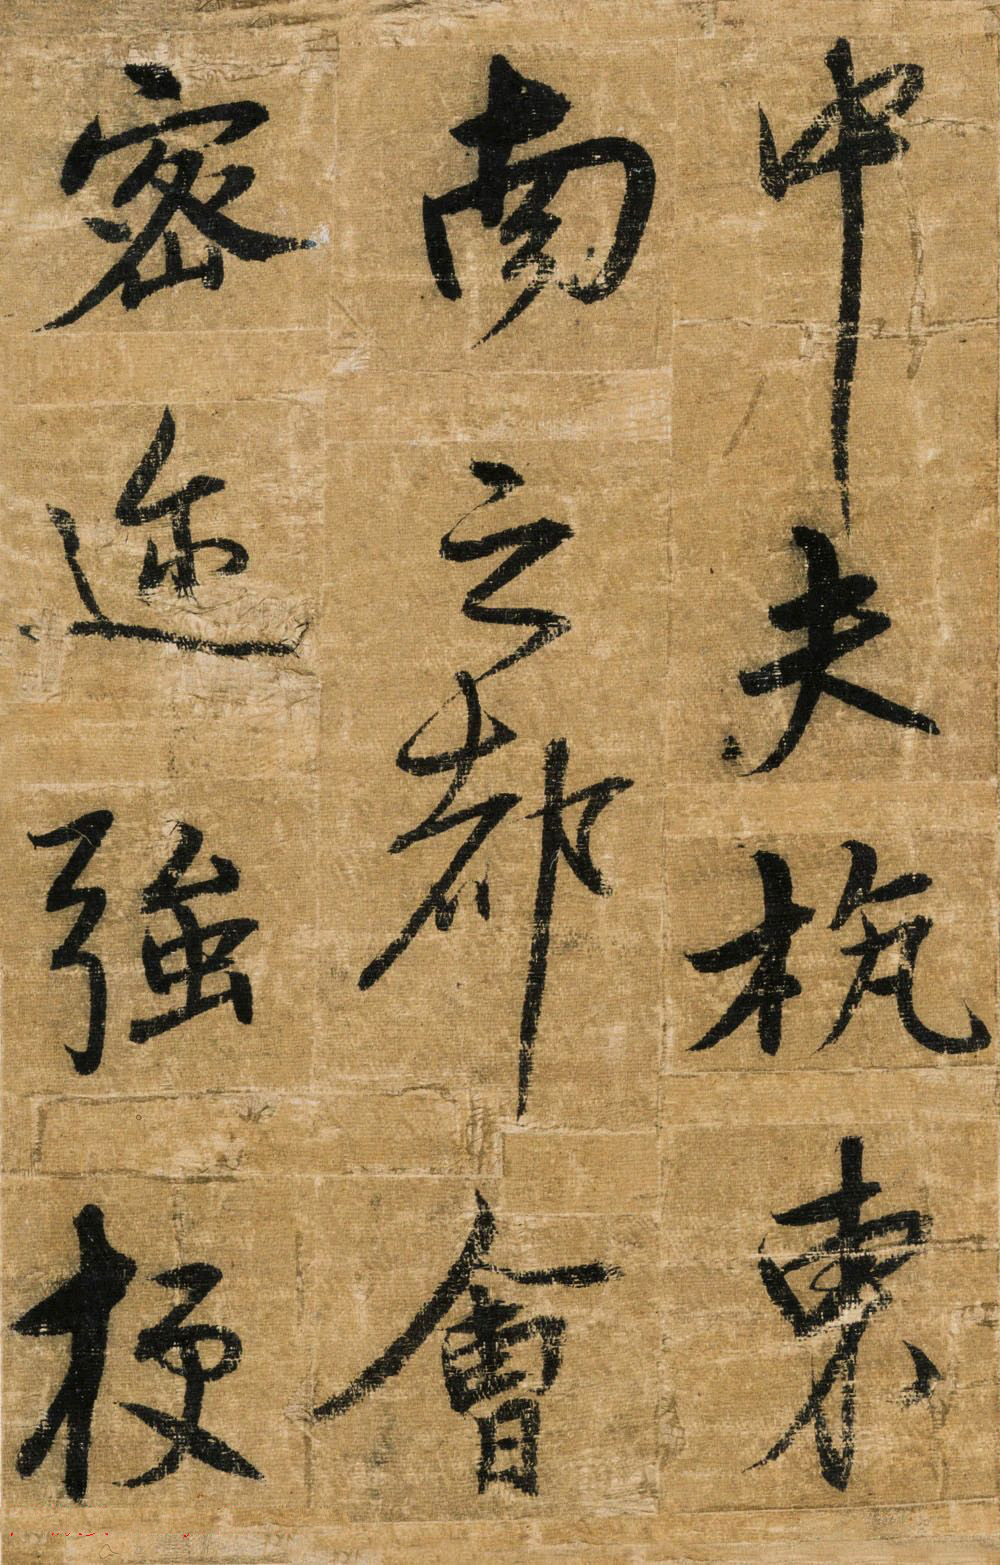 中夫杭東
南之都會
密迩強梗